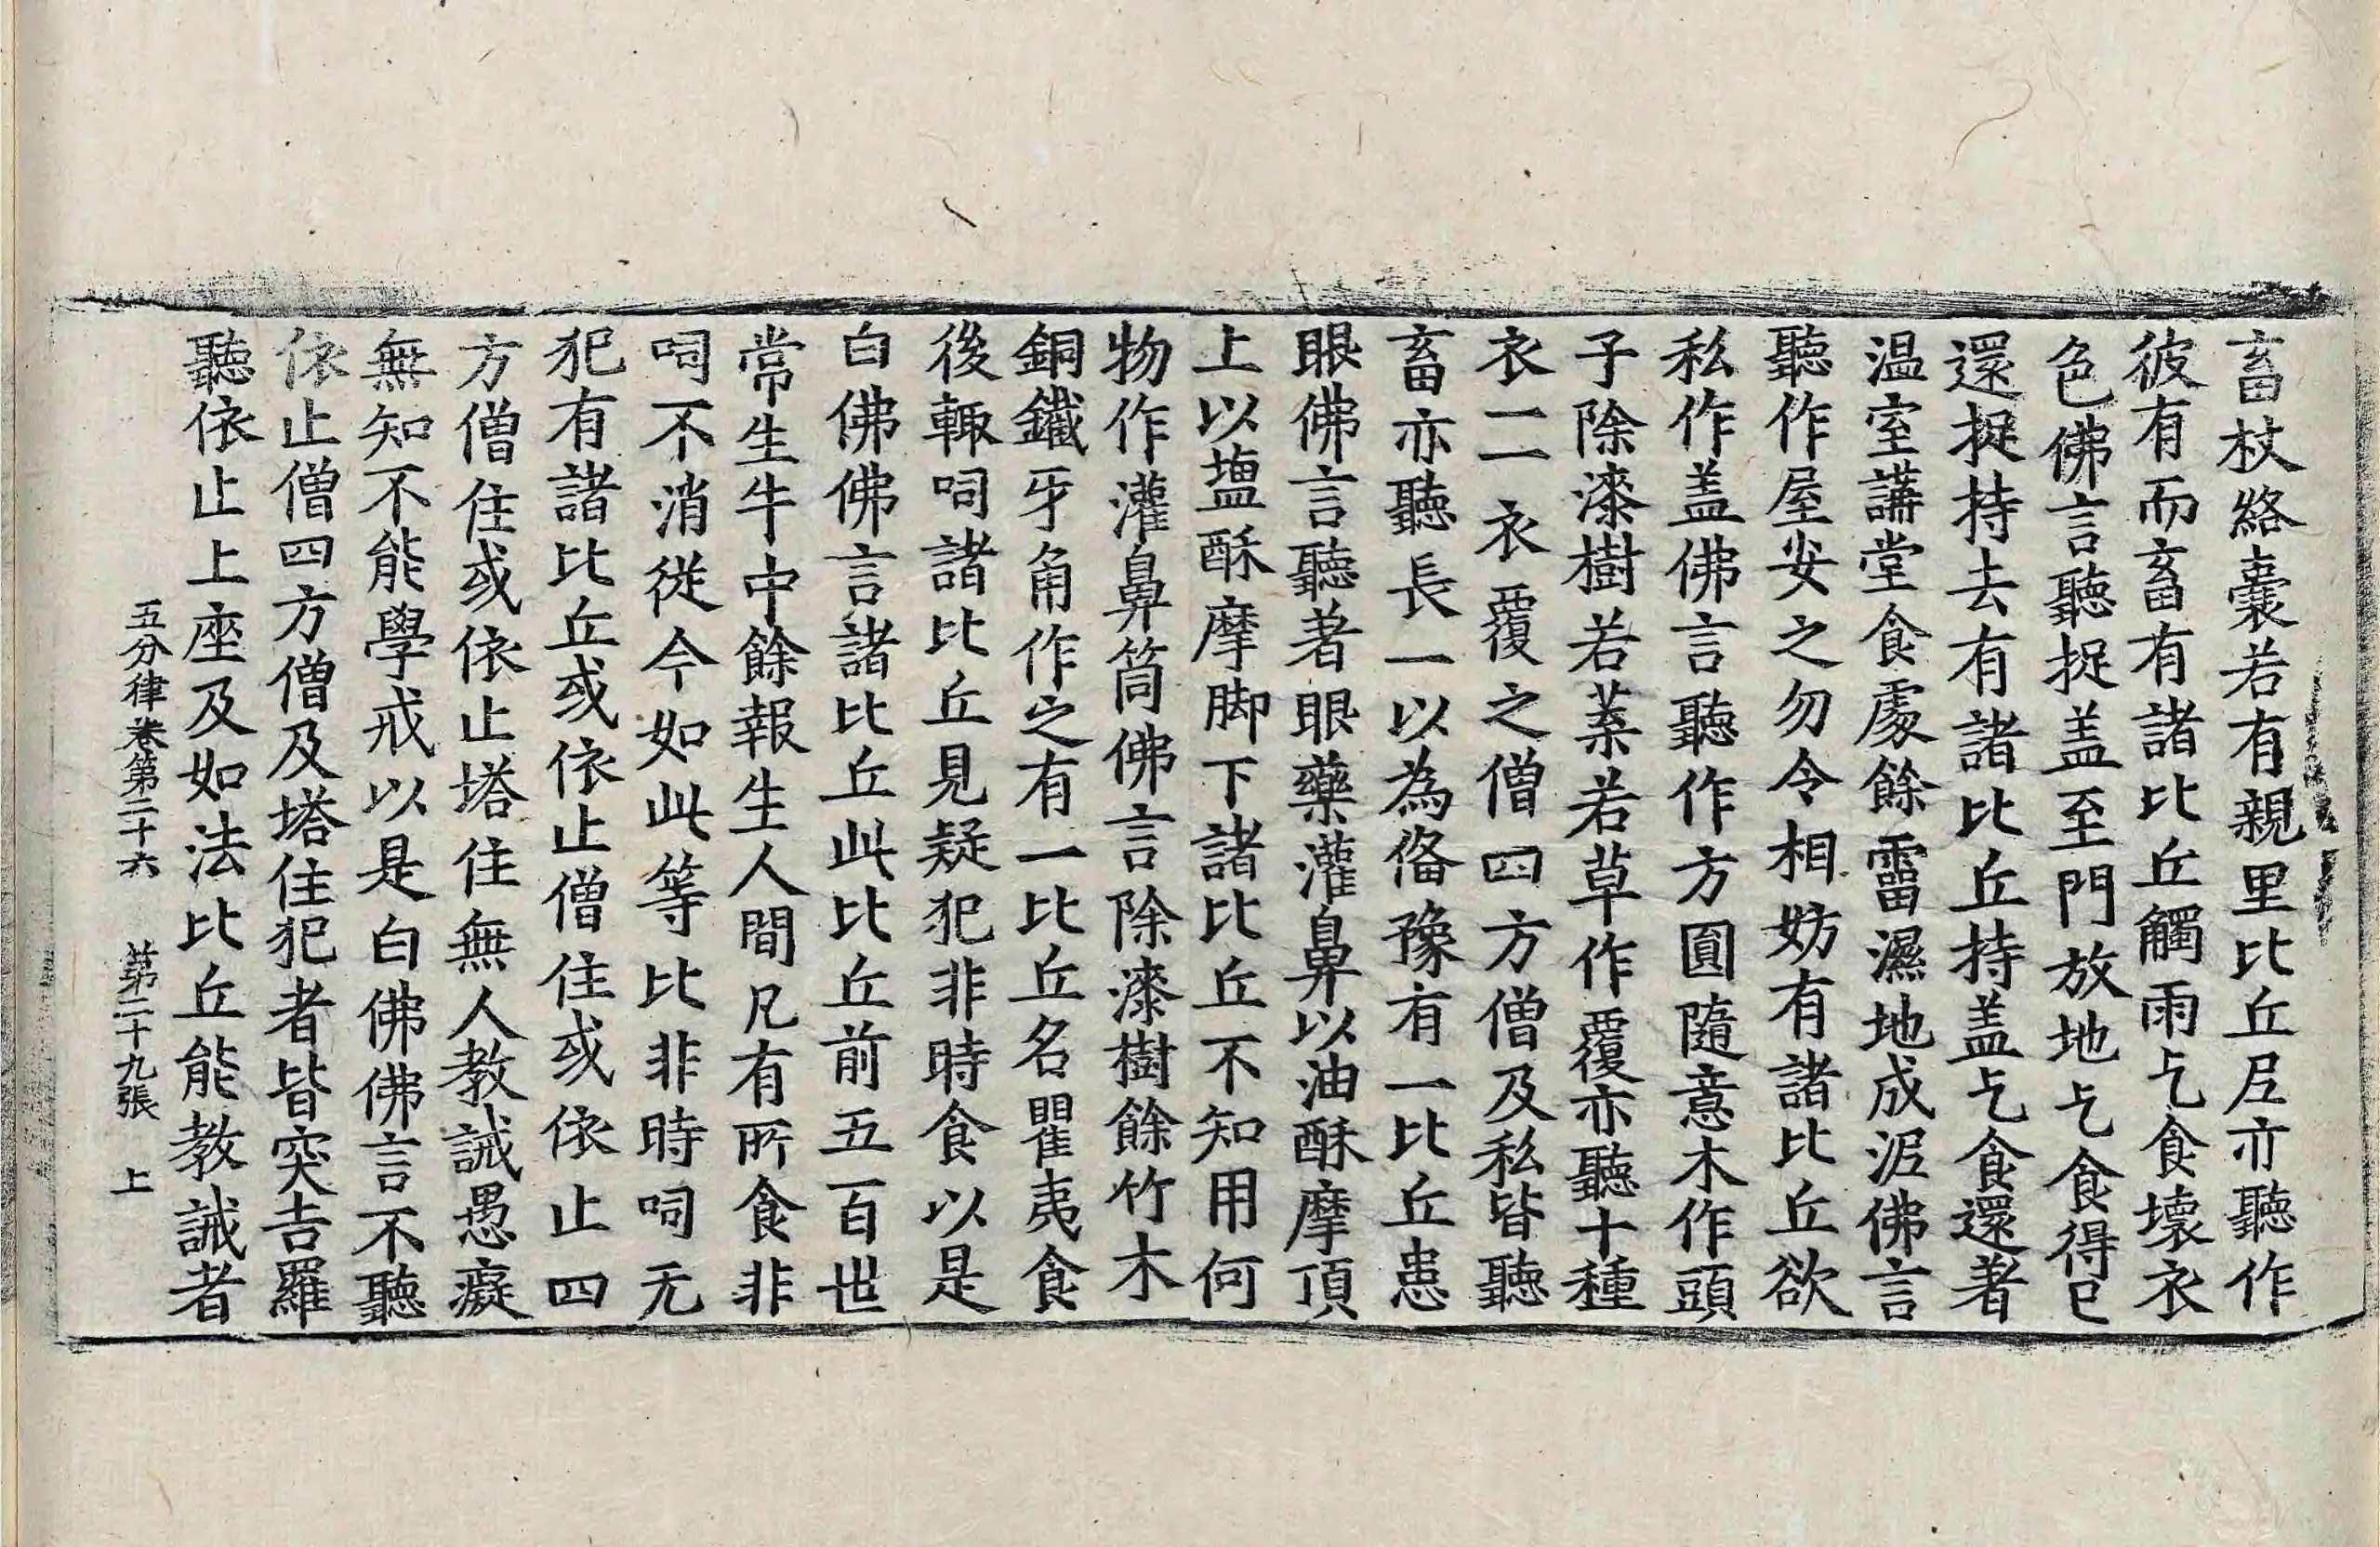 畜杖絡囊若有親里比丘尼亦聽作
彼有而畜有諸比丘觸雨乞食壞衣
色佛言聽捉盖至門放地乞食得已
還捉持去有諸比丘持盖乞食還著
温室講堂食處餘霤濕地成泥佛言
聽作屋安之勿令相妨有諸比丘欲
私作盖佛言聽作方圓隨意木作頭
子除漆樹若葉若草作覆亦聽十種
衣一一衣覆之僧四方僧及私皆聽
畜亦聽長一以為俻豫有一比丘患
眼佛言聽著眼藥灌鼻以油酥摩頂
上以塩酥摩脚下諸比丘不知用何
物作灌鼻筒佛言除漆樹餘竹木
銅鐵牙角作之有一比丘名瞿夷食
後輙呞諸比丘見疑犯非時食以是
白佛佛言諸比丘此比丘前五百世
常生牛中餘報生人間凡有所食非
呞不消從今如此等比非時呞无
犯有諸比丘或依止僧住或依止四
方僧住或依止塔住無人教誡愚癡
無知不能學戒以是白佛佛言不聽
依止僧四方僧及塔住犯者皆突吉羅
聽依止上座及如法比丘能教誡者
五分律卷第二十六 第二十九張 上